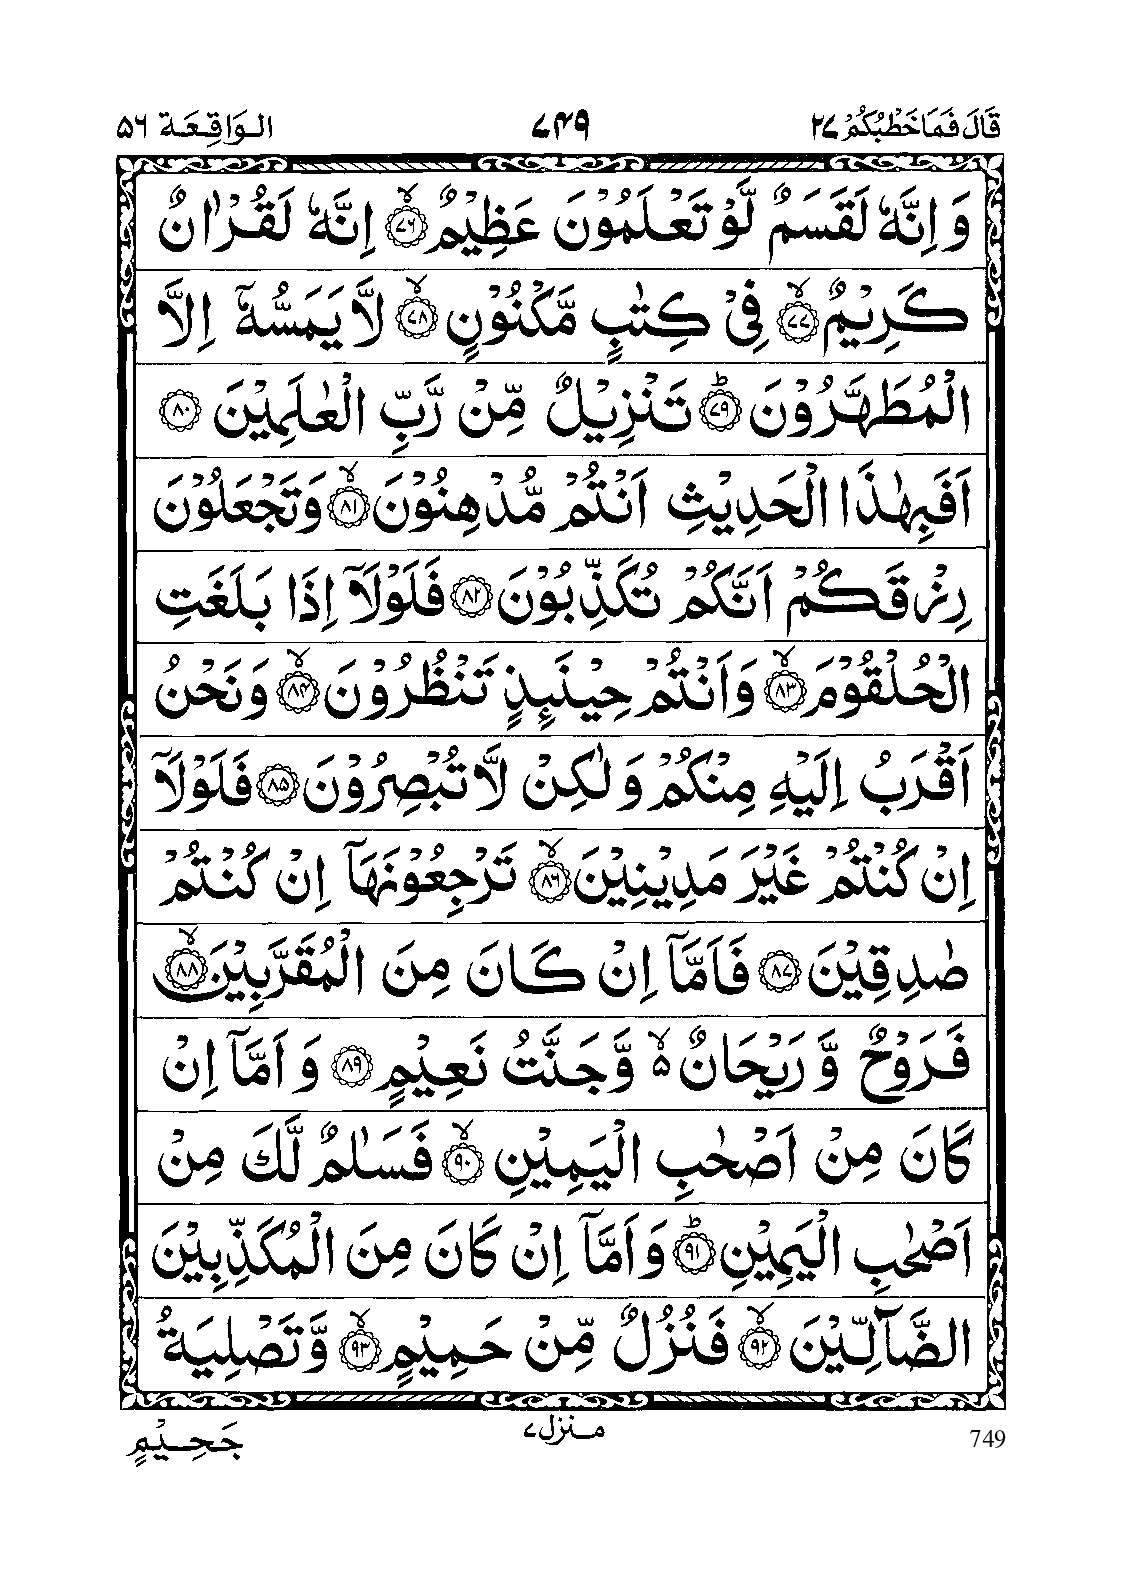 قَالَ فَمَا خَطْبُكُمْ ٢٧ ٧٤٩ الْوَاقِعَة ٥٦
وَ اِنَّهٗ لَقَسَمٌ لَّوْ تَعْلَمُوْنَ عَظِيْمٌ ۙ﴿٧٦﴾ اِنَّهٗ لَقُرْاٰنٌ
كَرِيْمٌ ۙ﴿٧٧﴾ فِيْ كِتٰبٍ مَّكْنُوْنٍ ۙ﴿٧٨﴾ لَّا يَمَسُّهٗٓ اِلَّا
الْمُطَهَّرُوْنَ ؕ﴿٧٩﴾ تَنْزِيْلٌ مِّنْ رَّبِّ الْعٰلَمِيْنَ ﴿٨٠﴾
اَفَبِهٰذَا الْحَدِيْثِ اَنْتُمْ مُّدْهِنُوْنَ ۙ﴿٨١﴾ وَتَجْعَلُوْنَ
رِزْقَكُمْ اَنَّكُمْ تُكَذِّبُوْنَ ﴿٨٢﴾ فَلَوْلَاۤ اِذَا بَلَغَتِ
الْحُلْقُوْمَ ۙ﴿٨٣﴾ وَاَنْتُمْ حِيْنَىِٕذٍ تَنْظُرُوْنَ ۙ﴿٨٤﴾ وَنَحْنُ
اَقْرَبُ اِلَيْهِ مِنْكُمْ وَلٰكِنْ لَّا تُبْصِرُوْنَ ﴿٨٥﴾ فَلَوْلَاۤ
اِنْ كُنْتُمْ غَيْرَ مَدِيْنِيْنَ ۙ﴿٨٦﴾ تَرْجِعُوْنَهَاۤ اِنْ كُنْتُمْ
صٰدِقِيْنَ ﴿٨٧﴾ فَاَمَّاۤ اِنْ كَانَ مِنَ الْمُقَرَّبِيْنَ ۙ﴿٨٨﴾
فَرَوْحٌ وَّ رَيْحَانٌ ۙ٥ وَّجَنَّتُ نَعِيْمٍ ﴿٨٩﴾ وَ اَمَّاۤ اِنْ
كَانَ مِنْ اَصْحٰبِ الْيَمِيْنِ ۙ﴿٩٠﴾ فَسَلٰمٌ لَّكَ مِنْ
اَصْحٰبِ الْيَمِيْنِ ؕ﴿٩١﴾ وَاَمَّاۤ اِنْ كَانَ مِنَ الْمُكَذِّبِيْنَ
الضَّآلِّيْنَ ۙ﴿٩٢﴾ فَنُزُلٌ مِّنْ حَمِيْمٍ ۙ﴿٩٣﴾ وَّتَصْلِيَةُ
منزل ٧
جَحِيْمٍ
749